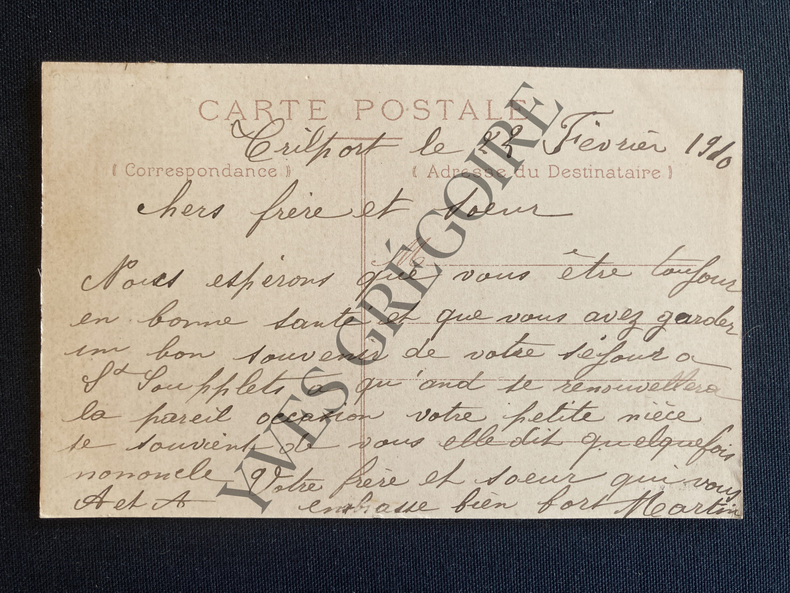 CARTE POSTALE
Trilport le 22 Février 1910
(Correspondance)
(Adresse du Destinataire)
chers frère et soeur
Nous espérons que vous être toujour
en bonne santé et que vous avez garder
un bon souvenir de votre séjour a
St Soupplets a qu'and se renouvellera
la pareil occasion votre petite nièce
se souvient de vous elle dit quelquefois
nononcle Votre frère et soeur qui vous
A et A embrasse bien fort Martin
YVES GRÉGOIRE